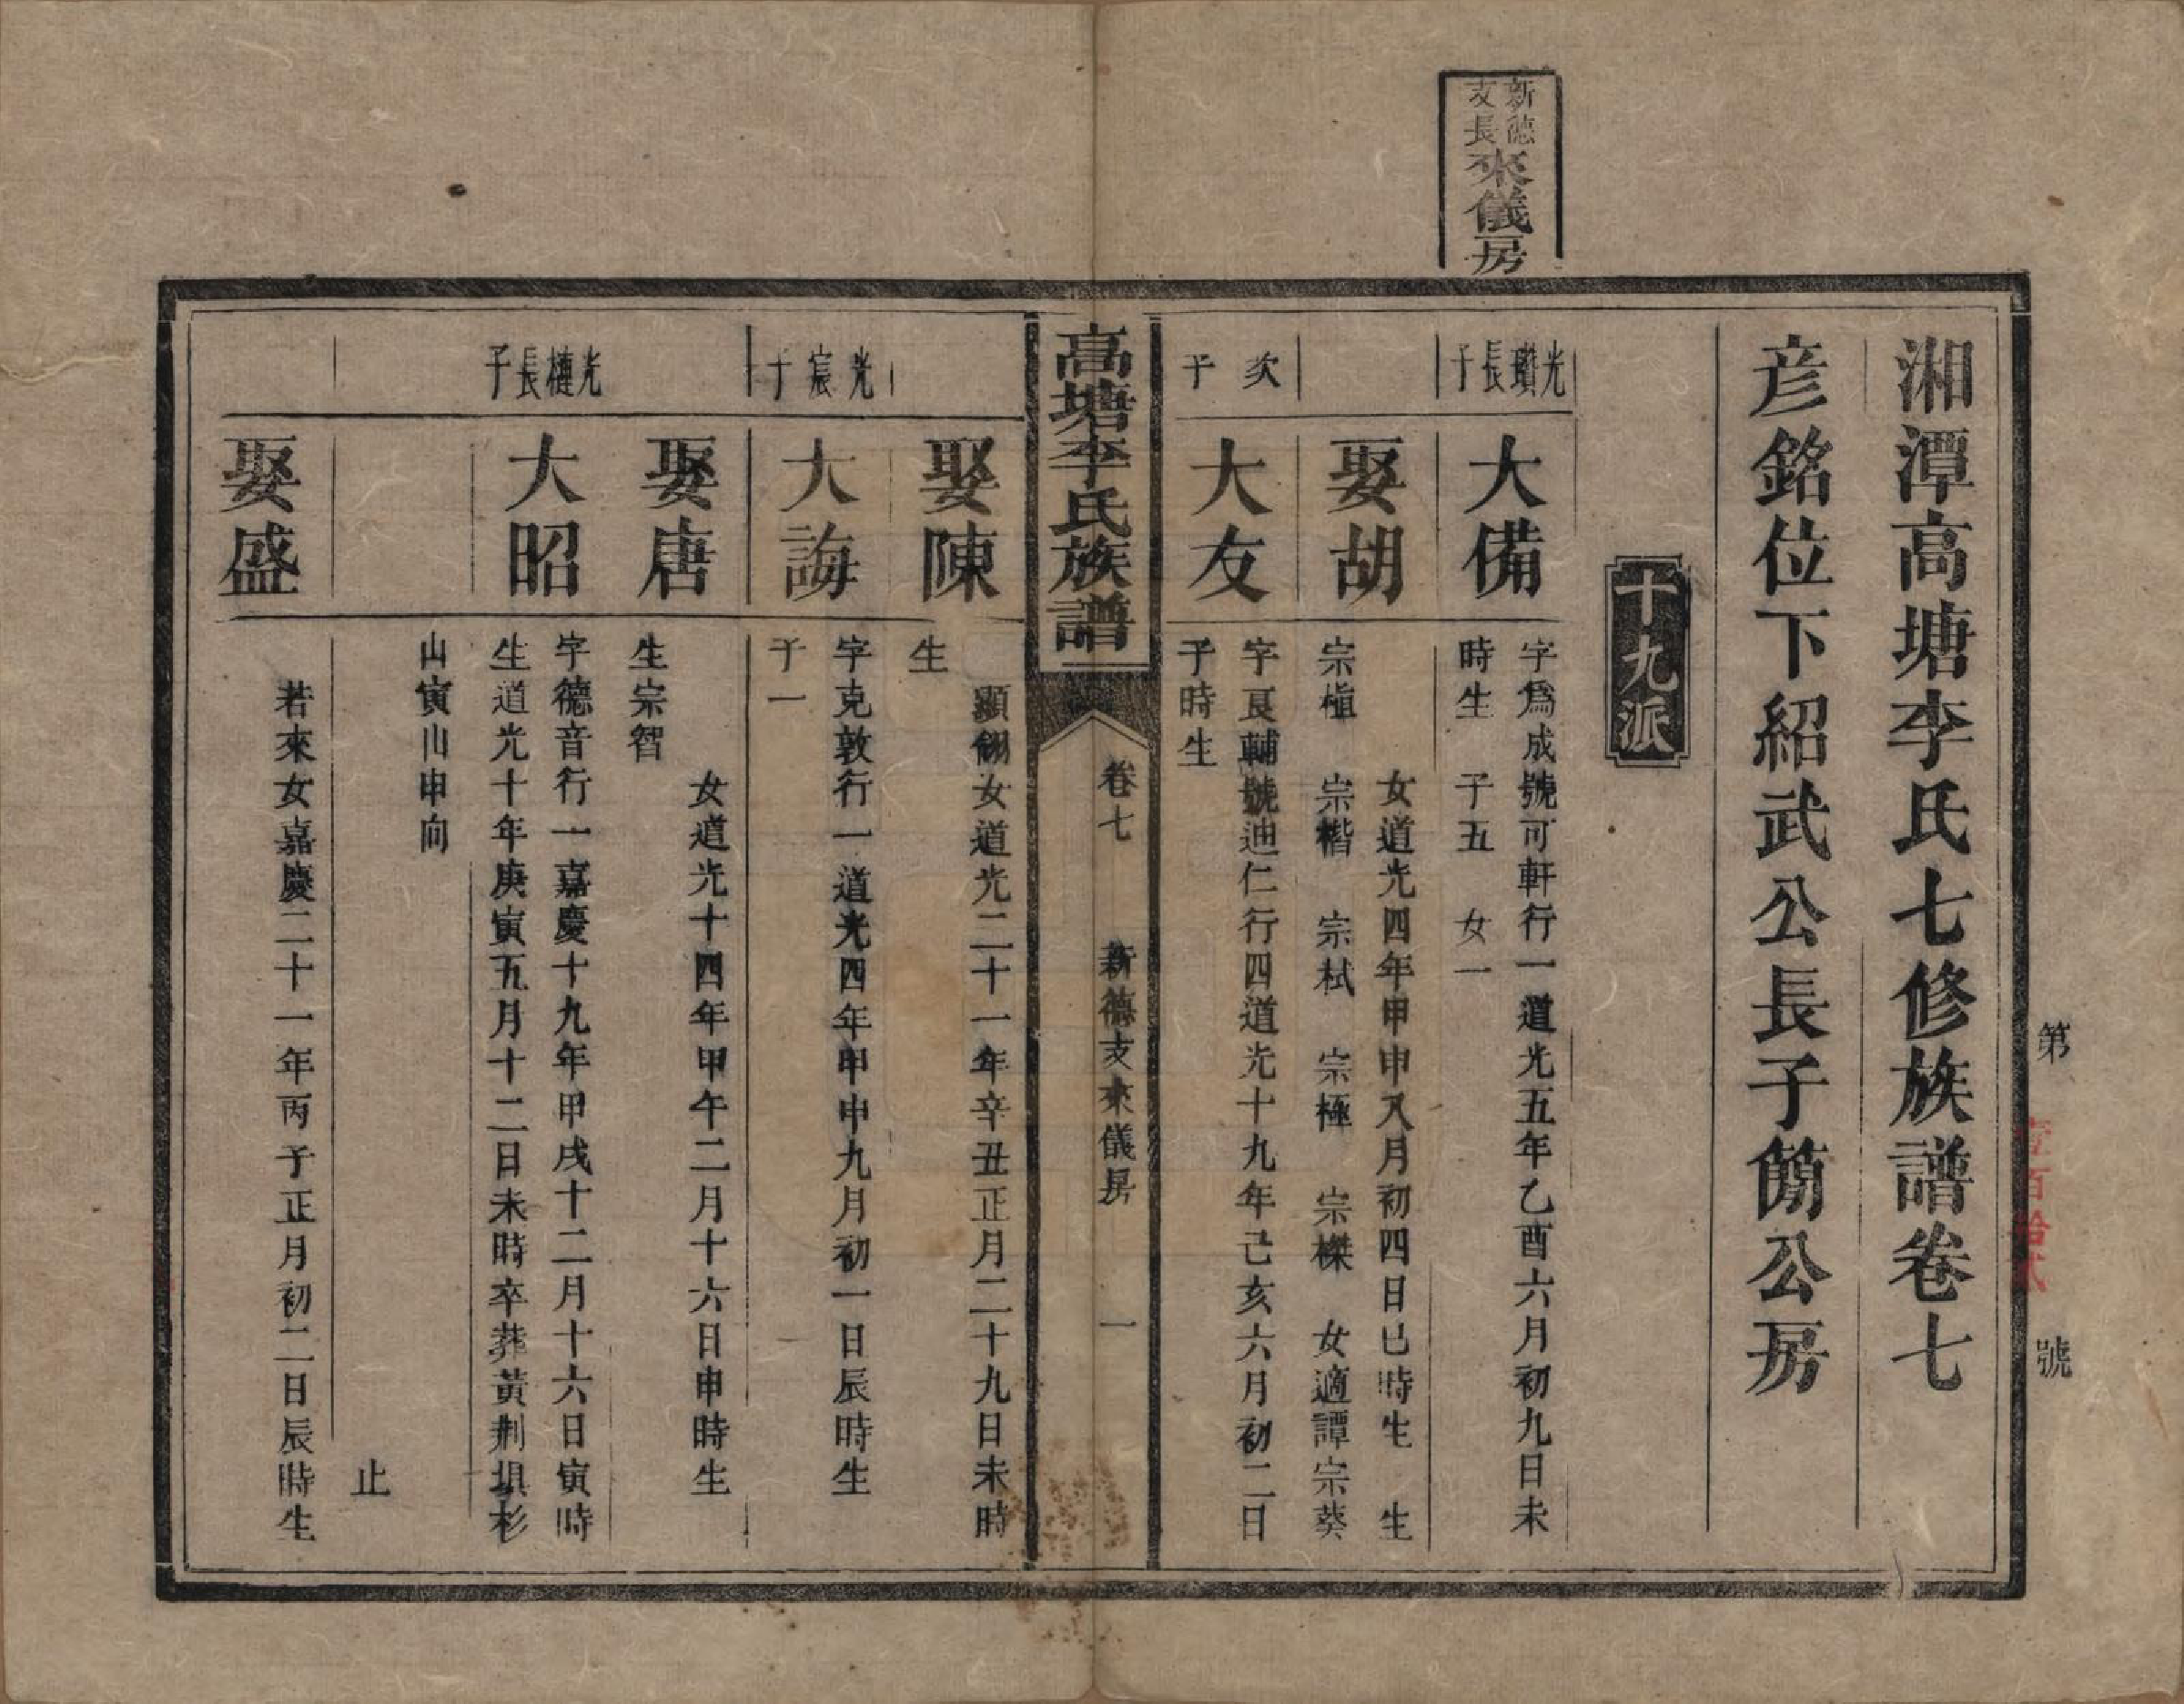 新德支長來儀房
第
壹百拾弍
號
湘潭高塘李氏七修族譜卷七
彦銘位下紹武公長子簡公房
十九派
光瓚長子
大備
字爲成號可軒行一道光五年乙酉六月初九日未
時生　子五　女一
娶胡
女道光四年甲申八月初四日巳時生　生
宗植　宗楷　宗栻　宗極　宗榤　女適譚宗葵
次子
大友
字良輔號迪仁行四道光十九年己亥六月初二日
子時生
高塘李氏族譜
卷七
新德支來儀房
一
娶陳
顯錦女道光二十一年辛丑正月二十九日未時
生
光宸子
大誨
字克敦行一道光四年甲申九月初一日辰時生
子一
娶唐
女道光十四年甲午二月十六日申時生
生宗智
光槤長子
大昭
字德音行一嘉慶十九年甲戌十二月十六日寅時
生道光十年庚寅五月十二日未時卒葬黃荆埧杉
山寅山申向
止
娶盛
若來女嘉慶二十一年丙子正月初二日辰時生